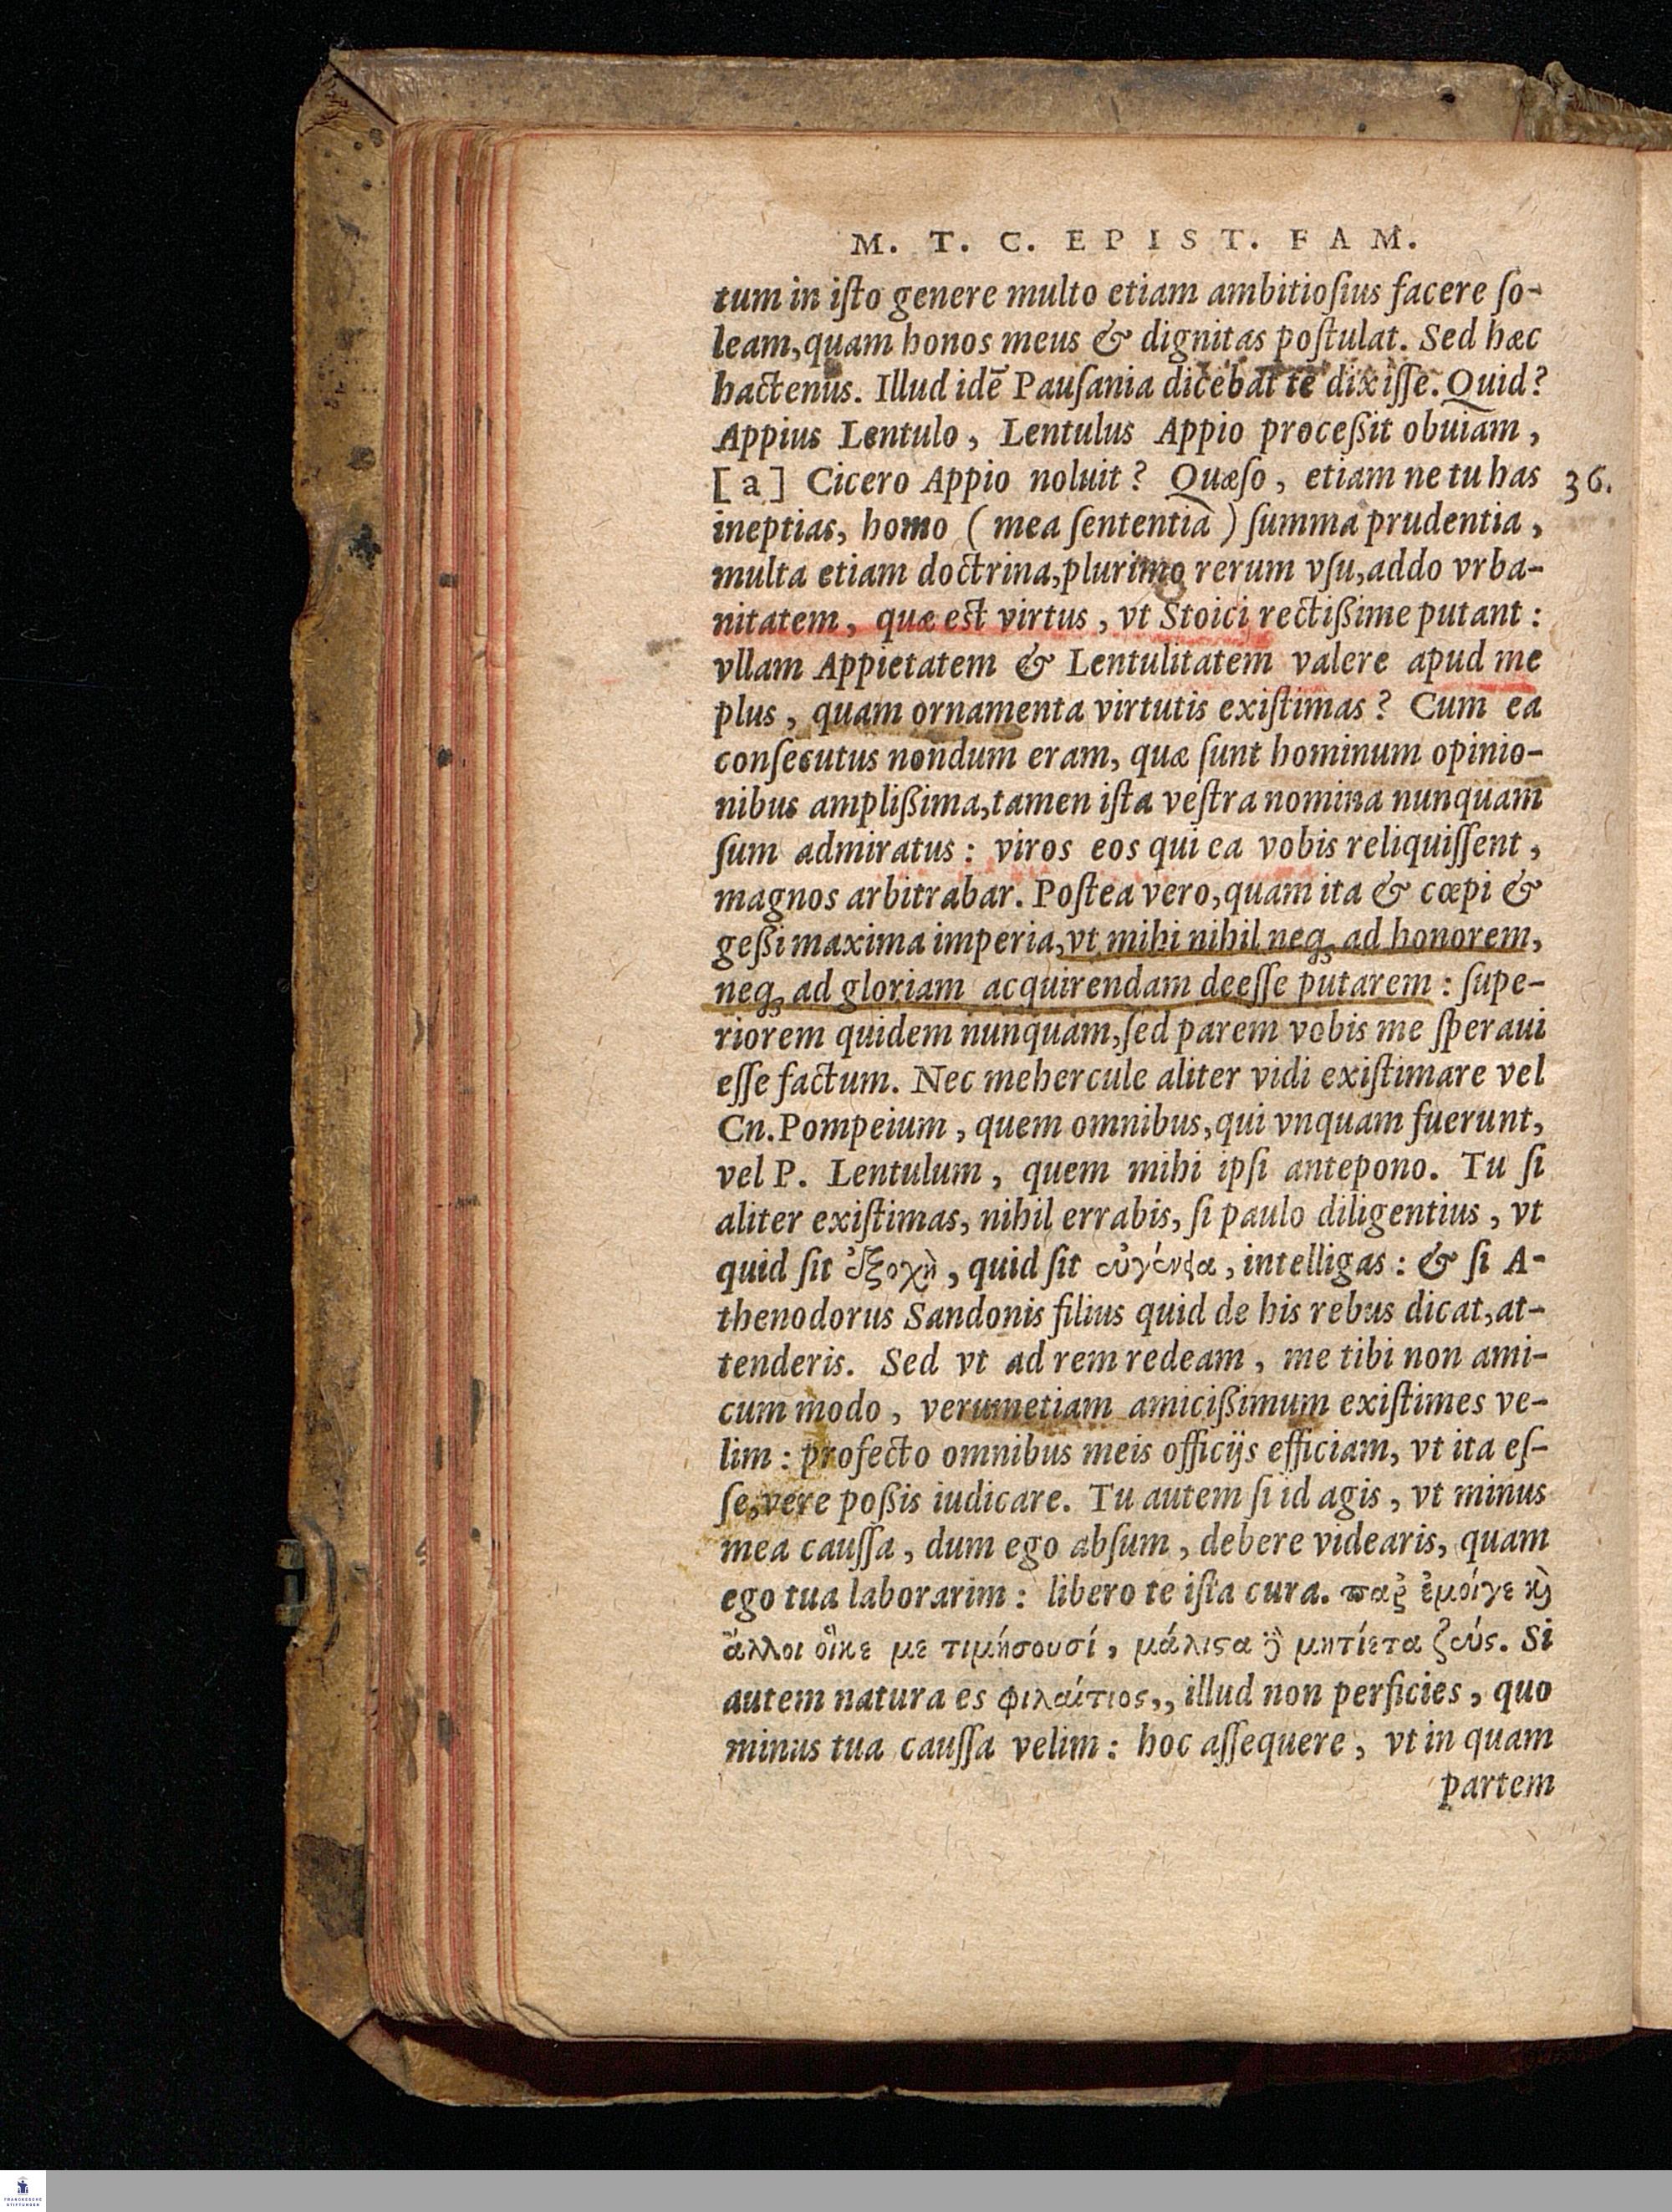 M. T. C. EPIST. FAM.
tum in iſto genere multo etiam ambitioſius facere ſo-
leam, quam honos meus & dignitas poſtulat. Sed hæc
hactenus. Illud idē Pauſania dicebat te dixiſſe. Quid?
Appius Lentulo, Lentulus Appio proceßit obuiam,
[a] Cicero Appio noluit? Quæſo, etiam ne tu has 36.
ineptias, homo (mea ſententia) ſumma prudentia,
multa etiam doctrina, plurimo rerum vſu, addo vrba-
nitatem, quæ est virtus, vt Stoici rectißime putant:
vllam Appietatem & Lentulitatem valere apud me
plus, quam ornamenta virtutis exiſtimas? Cum ea
conſecutus nondum eram, quæ ſunt hominum opinio-
nibus amplißima, tamen iſta veſtra nomina nunquam
ſum admiratus: viros eos qui ea vobis reliquiſſent,
magnos arbitrabar. Poſtea vero, quam ita & cœpi &
geßi maxima imperia, vt mihi nihil neq; ad honorem,
neq; ad gloriam acquirendam deeſſe putarem: ſupe-
riorem quidem nunquam, ſed parem vobis me ſperaui
eſſe factum. Nec mehercule aliter vidi exiſtimare vel
Cn. Pompeium, quem omnibus, qui vnquam fuerunt,
vel P. Lentulum, quem mihi ipſi antepono. Tu ſi
aliter exiſtimas, nihil errabis, ſi paulo diligentius, vt
quid ſit ἐξοχὴ, quid ſit εὐγένεια, intelligas: & ſi A-
thenodorus Sandonis filius quid de his rebus dicat, at-
tenderis. Sed vt ad rem redeam, me tibi non ami-
cum modo, verumetiam amicißimum exiſtimes ve-
lim: profecto omnibus meis officijs efficiam, vt ita eſ-
ſe, vere poßis iudicare. Tu autem ſi id agis, vt minus
mea cauſſa, dum ego abſum, debere videaris, quam
ego tua laborarim: libero te iſta cura. παρ' ἐμοίγε καὶ
ἄλλοι οἵκε με τιμήσουσί, μάλιστα δὲ μητίετα ζεύς. Si
autem natura es φιλαίτιος,, illud non perficies, quo
minus tua cauſſa velim: hoc aſſequere, vt in quam
partem
FRANCKESCHE
STIFTUNGEN